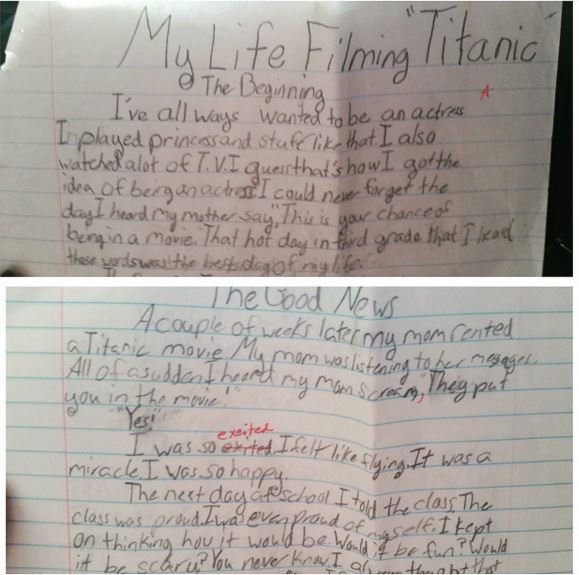 My Life Filming "Titanic"
The Beginning
A
I've all ways wanted to be an actress
I played princess and stuff like that. I also
watched alot of T.V. I guess that's how I got the
idea of being an actress. I could never forget the
day I heard my mother say, "This is your chance of
being in a movie. That hot day in third grade that I heard
these words was the best day of my life.
The Good News
A couple of weeks later my mom rented
a Titanic movie. My mom was listening to her messages.
All of a sudden I heard my mom scream, "They put
you in the movie!"
"Yes!"
excited
I was so exited. I felt like flying. It was a
miracle. I was so happy.
The next day at school I told the class. The
class was proud. I was even proud of myself. I kept
on thinking how it would be. Would it be fun? Would
it be scary? You never know. I also thought that